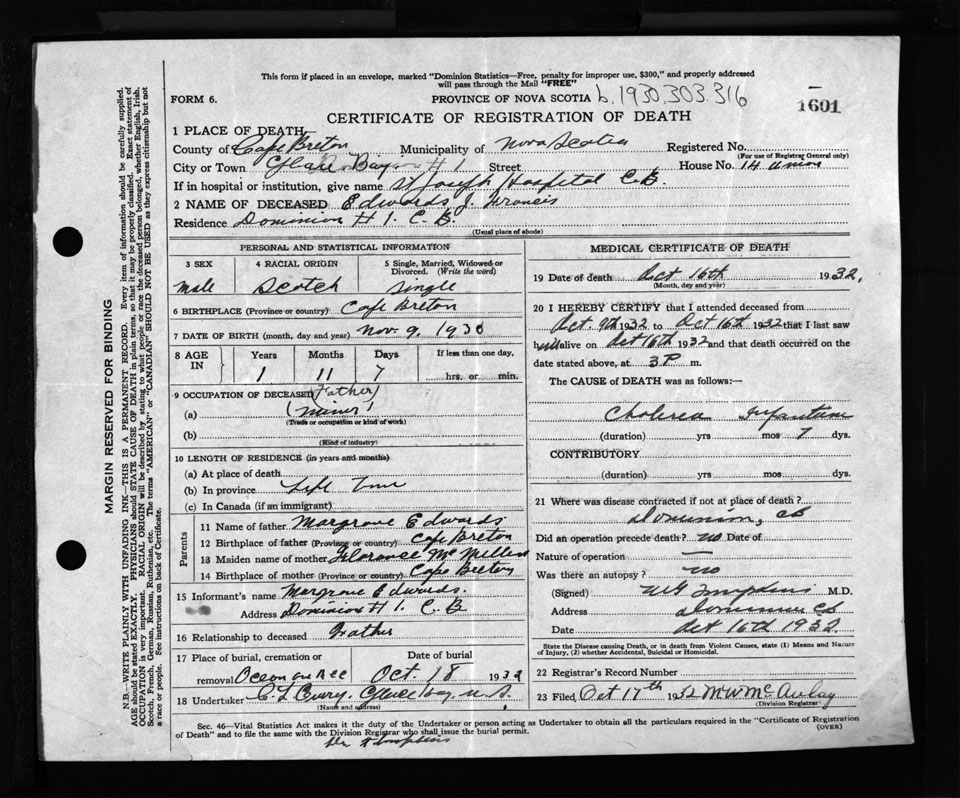 This form if placed in an envelope, marked "Dominion Statistics—Free, penalty for improper use, $300," and properly addressed
will pass through the Mail "FREE"
FORM 6. PROVINCE OF NOVA SCOTIA b.1930.303.316
1601
CERTIFICATE OF REGISTRATION OF DEATH
1 PLACE OF DEATH
County of Cape Breton Municipality of Nova Scotia Registered No.
(For use of Registrar General only)
City or Town Glace Bay Street House No. 14 Union
If in hospital or institution, give name St Joseph Hospital C.B.
2 NAME OF DECEASED Edwards J. Francis
Residence Dominion # 1. C. B.
(Usual place of abode)
PERSONAL AND STATISTICAL INFORMATION
3 SEX 4 RACIAL ORIGIN 5 Single, Married, Widowed or
Divorced. (Write the word)
Male Scotch Single
6 BIRTHPLACE (Province or country) Cape Breton
7 DATE OF BIRTH (month, day and year) Nov. 9. 1930
8 AGE IN Years Months Days If less than one day,
1 11 7 hrs. or min.
9 OCCUPATION OF DECEASED (Father)
(a) (Miner)
(Trade or occupation or kind of work)
(b)
(Kind of industry)
10 LENGTH OF RESIDENCE (in years and months)
(a) At place of death
(b) In province Life Time
(c) In Canada (if an immigrant)
Parents
11 Name of father Margrove Edwards
12 Birthplace of father (Province or country) Cape Breton
13 Maiden name of mother Florance McMillen
14 Birthplace of mother (Province or country) Cape Breton
15 Informant's name Margrove Edwards.
Address Dominion # 1. C. B
16 Relationship to deceased Father
17 Place of burial, cremation or Date of burial
removal Oct. 18 1932
18 Undertaker C. L Curry. Glace bay. N. S.
(Name and address)
MEDICAL CERTIFICATE OF DEATH
19 Date of death Oct 16th 1932.
(Month, day and year)
20 I HEREBY CERTIFY that I attended deceased from
Oct. 9th 1932 to Oct 16th 1932 that I last saw
him alive on Oct 16th 1932 and that death occurred on the
date stated above, at 3 P m.
The CAUSE of DEATH was as follows:—
Cholerea Infantum
(duration) yrs mos 7 dys.
CONTRIBUTORY
(duration) yrs. mos. dys.
21 Where was disease contracted if not at place of death?
Dominion, CB
Did an operation precede death? no Date of
Nature of operation —
Was there an autopsy? no
(Signed) Tompkins M.D.
Address Dominion CB
Date Oct 16th 1932.
State the Disease causing Death, or in death from Violent Causes, state (1) Means and Nature
of Injury, (2) whether Accidental, Suicidal or Homicidal.
22 Registrar's Record Number
23 Filed Oct 17th 1932 M W McAulay
(Division Registrar)
Sec. 46—Vital Statistics Act makes it the duty of the Undertaker or person acting as Undertaker to obtain all the particulars required in the "Certificate of Registration
of Death" and to file the same with the Division Registrar who shall issue the burial permit.
(OVER)
Dr Tompkins
MARGIN RESERVED FOR BINDING
N.B.—WRITE PLAINLY WITH UNFADING INK—THIS IS A PERMANENT RECORD. Every item of information should be carefully supplied.
AGE should be stated EXACTLY. PHYSICIANS should STATE CAUSE OF DEATH in plain terms, so that it may be properly classified. Exact statement of
OCCUPATION is very important. RACIAL ORIGIN will be described by stating to what people or race the deceased person belonged, whether English, Irish,
Scotch, French, German, Russian, Ruthenian, etc. The terms "AMERICAN" or "CANADIAN" SHOULD NOT BE USED as they express citizenship but not
a race or people. See instructions on back of Certificate.